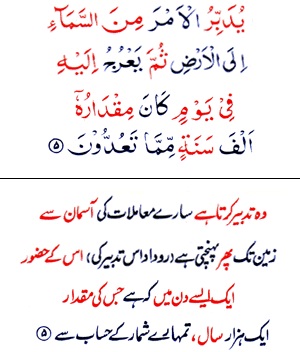 يُدَبِّرُ الْاَمْرَ مِنَ السَّمَآءِ
اِلَى الْاَرْضِ ثُمَّ يَعْرُجُ اِلَيْهِ
فِيْ يَوْمٍ كَانَ مِقْدَارُهٗۤ
اَلْفَ سَنَةٍ مِّمَّا تَعُدُّوْنَ ۵
وہ تدبیر کرتا ہے سارے معاملات کی آسمان سے
زمین تک پھر پہنچتی ہے (روداد اس تدبیر کی) اس کے حضور
ایک ایسے دن میں کہ ہے جس کی مقدار
ایک ہزار سال، تمہارے شمار کے حساب سے ۵